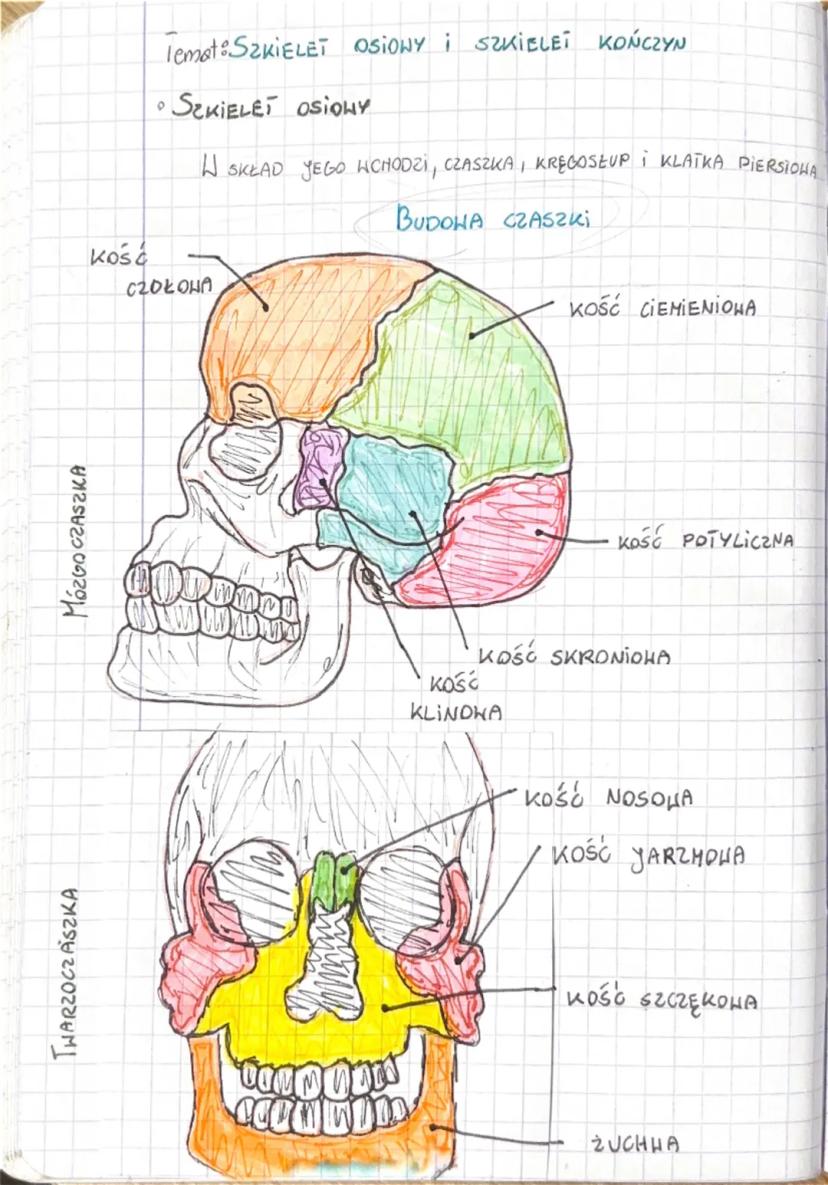 Temat: SZKIELET OSIOWY i SZKIELET KOŃCZYN
° SZKIELET OSIOWY
W SKŁAD JEGO WCHODZI, CZASZKA, KRĘGOSŁUP i KLATKA PIERSIOWA
BUDOWA CZASZKI
KOŚĆ
CZOŁOWA
KOŚĆ CIEMIENIOWA
MÓZGOCZASZKA
KOŚĆ POTYLICZNA
KOŚĆ SKRONIOWA
KOŚĆ
KLINOWA
KOŚĆ NOSOWA
KOŚĆ JARZMOWA
TWARZOCZASZKA
KOŚĆ SZCZĘKOWA
ŻUCHWA